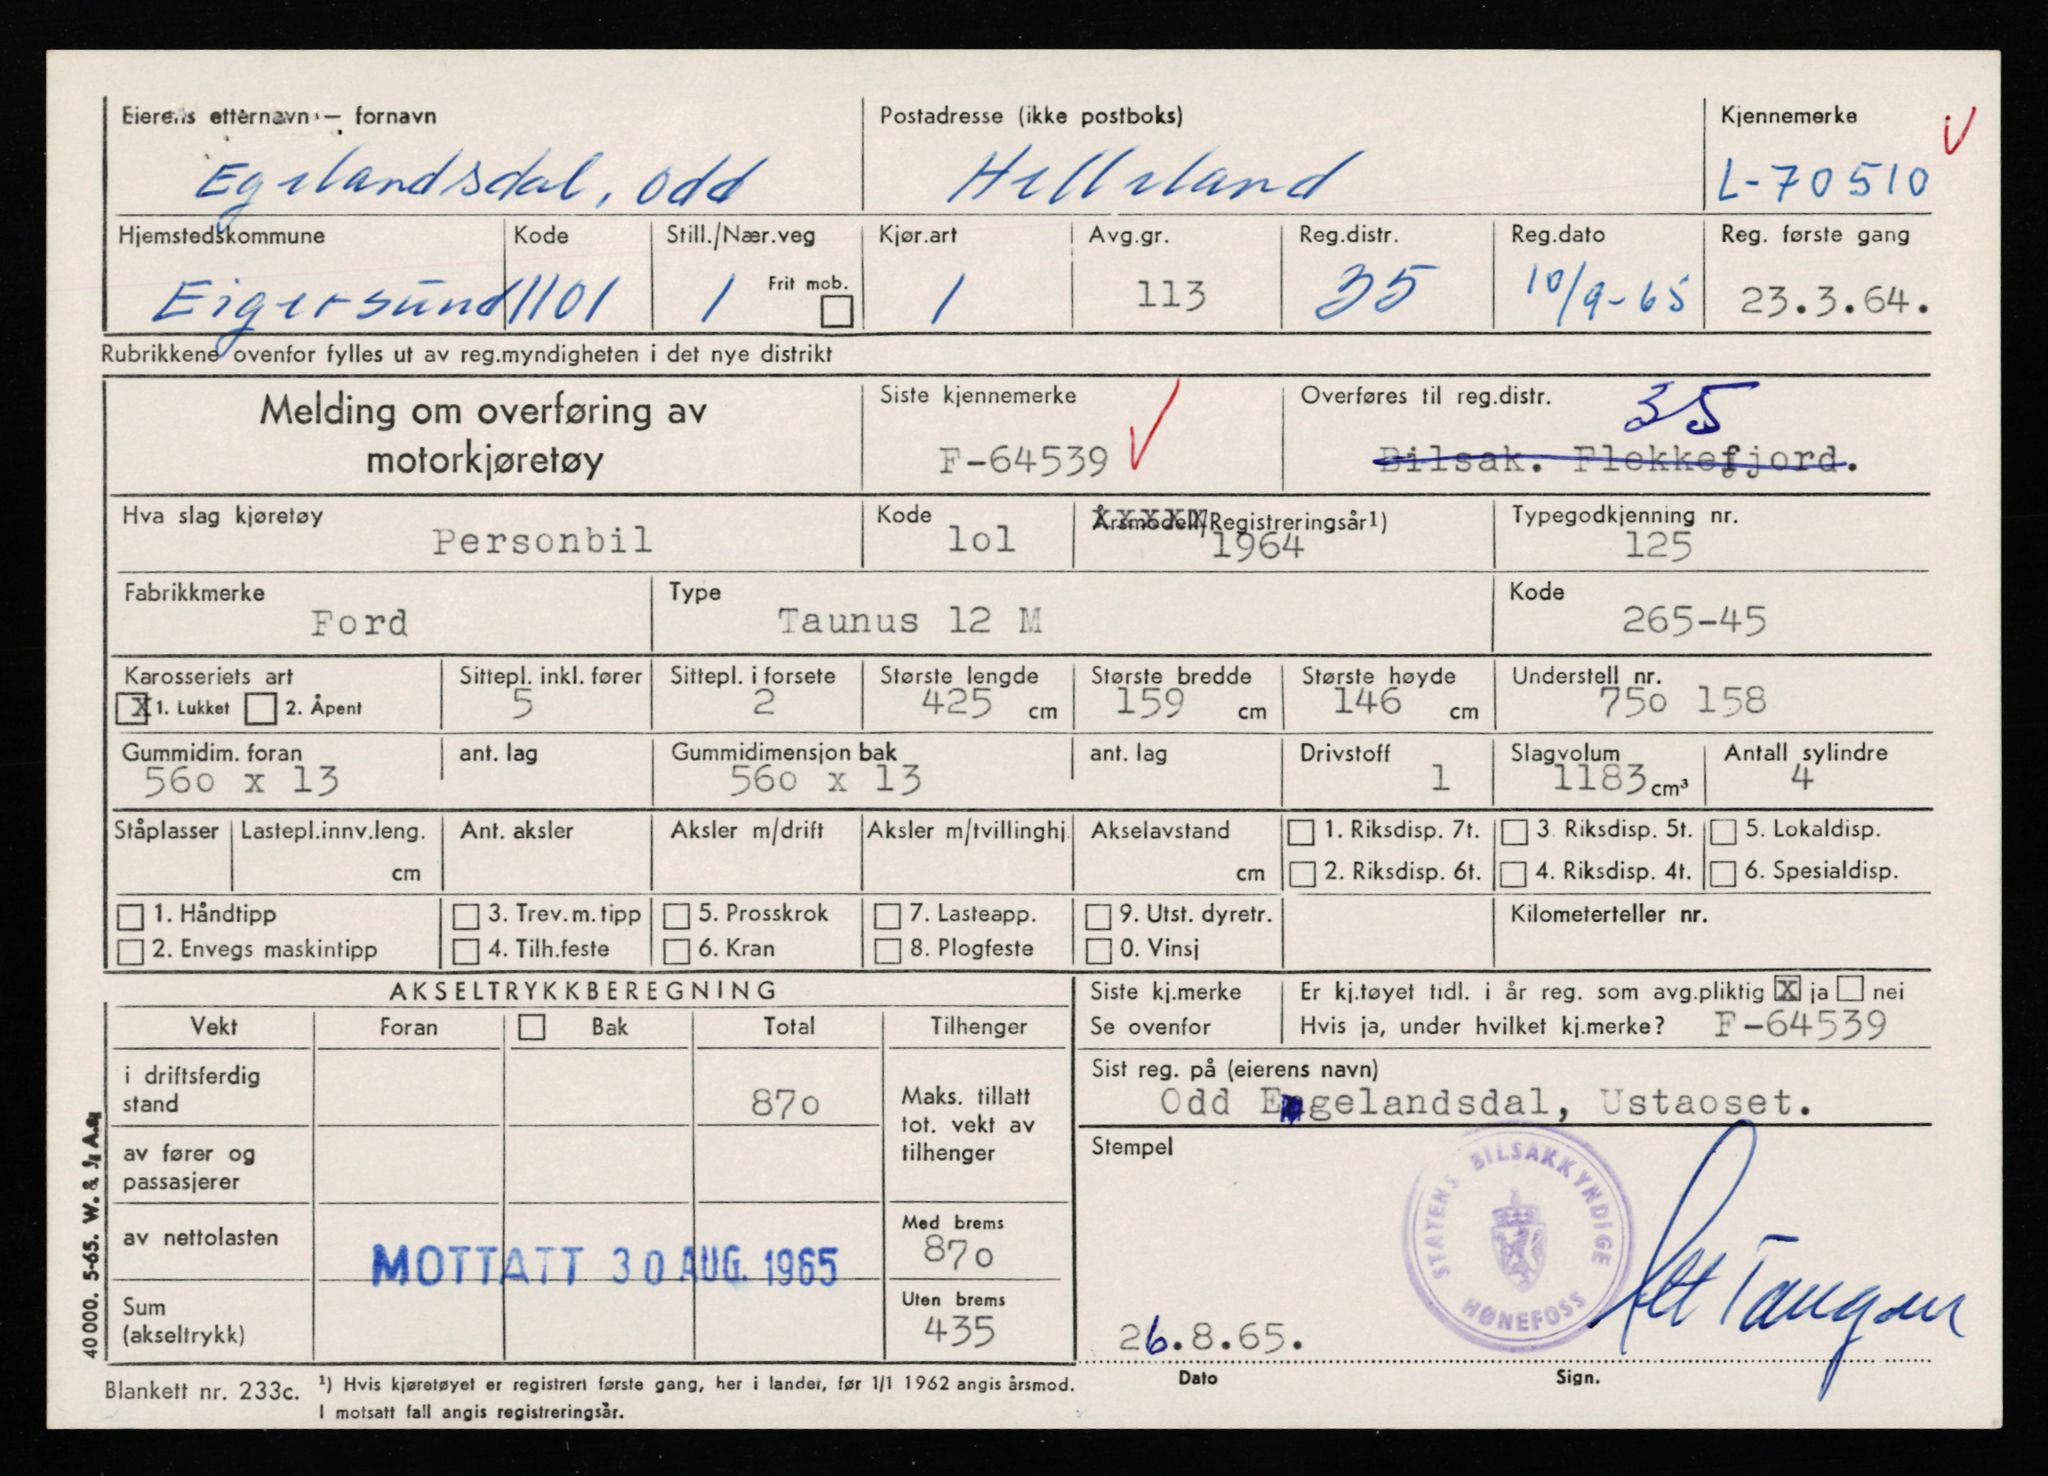 Eierens etternavn — fornavn Postadresse (ikke postboks) Kjennemerke
Egelandsdal, Odd Helleland L-70510
Hjemstedskommune Kode Still./Nær.veg Kjør.art Avg.gr. Reg.distr. Reg.dato Reg. første gang
Eigersund 1101 1 Frit mob. 1 113 35 10/9-65 23.3.64.
Rubrikkene ovenfor fylles ut av reg.myndigheten i det nye distrikt
Melding om overføring av motorkjøretøy
Siste kjennemerke Overføres til reg.distr. 35
F-64539 Bilsak. Flekkefjord.
Hva slag kjøretøy Kode Årsmodell/Registreringsår1) Typegodkjenning nr.
Personbil 101 1964 125
Fabrikkmerke Type Kode
Ford Taunus 12 M 265-45
Karosseriets art Sittepl. inkl. fører Sittepl. i forsete Største lengde Største bredde Største høyde Understell nr.
X 1. Lukket 2. Åpent 5 2 425 cm 159 cm 146 cm 750 158
Gummidim. foran ant. lag Gummidimensjon bak ant. lag Drivstoff Slagvolum Antall sylindre
560 x 13 560 x 13 1 1183 cm³ 4
Ståplasser Lastepl.innv.leng. Ant. aksler Aksler m/drift Aksler m/tvillinghj. Akselavstand 1. Riksdisp. 7t. 3. Riksdisp. 5t. 5. Lokaldisp.
cm cm 2. Riksdisp. 6t. 4. Riksdisp. 4t. 6. Spesialdisp.
1. Håndtipp 3. Trev.m.tipp 5. Prosskrok 7. Lasteapp. 9. Utst. dyretr. Kilometerteller nr.
2. Envegs maskintipp 4. Tilh.feste 6. Kran 8. Plogfeste 0. Vinsj
AKSELTRYKKBEREGNING Siste kj.merke Er kj.tøyet tidl. i år reg. som avg.pliktig X ja nei
Vekt Foran Bak Total Tilhenger Se ovenfor Hvis ja, under hvilket kj.merke? F-64539
i driftsferdig stand 870 Maks. tillatt tot. vekt av tilhenger
Sist reg. på (eierens navn)
Odd Egelandsdal, Ustaoset.
av fører og passasjerer
Stempel
STATENS BILSAKKYNDIGE HØNEFOSS
av nettolasten Med brems
870
MOTTATT 30 AUG. 1965
Sum (akseltrykk) Uten brems
435
26.8.65.
Dato Sign.
40 000. 5-65. W. &
Blankett nr. 233c. 1) Hvis kjøretøyet er registrert første gang, her i landet, før 1/1 1962 angis årsmod.
I motsatt fall angis registreringsår.